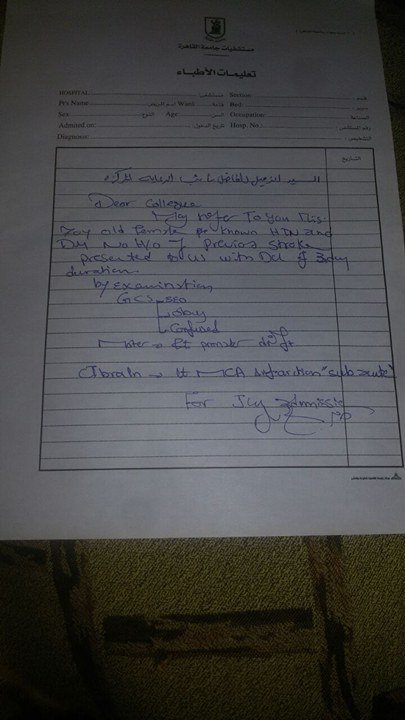 مستشفيات جامعة القاهرة
تعليمات الأطباء
HOSPITAL: مستشفى: Section: قسم
Pt's Name اسم المريض Ward: قاعة Bed: سرير
Sex النوع Age السن Occupation: الصناعة
Admitted on: تاريخ الدخول Hosp. No. رقم المستشفى
Diagnosis: التشخيص
التاريخ
السيد الزميل الفاضل نائب الرعاية المركزة
Dear Colleague
May refer To you This
old female known HTN and
DM No H/o of previous stroke
presented to us with DCL of 3 day
duration
by examination
GCS
obey
Confused
Moter
CT brain → MCA infarction "subacute"
For ICU admission